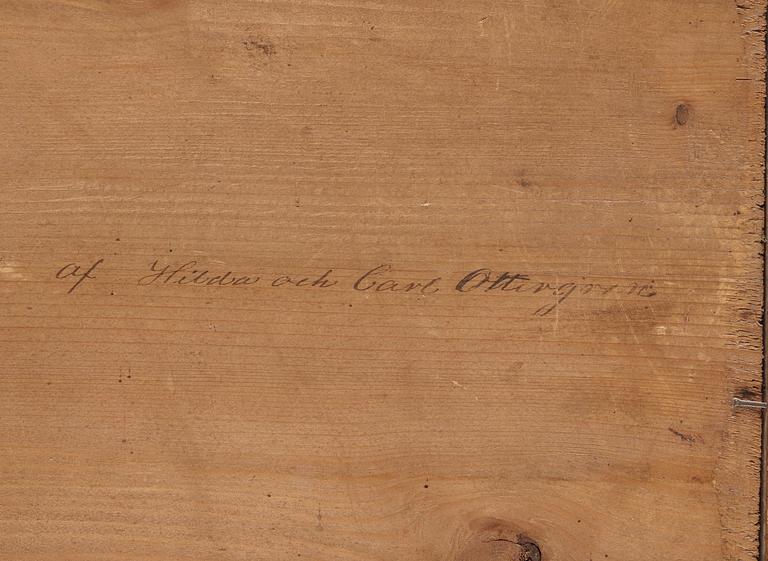 af Hilda och Carl Ottergren